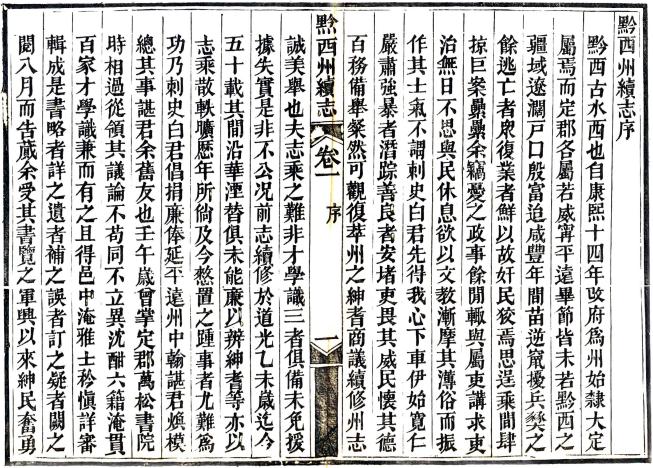 黔西州續志序
黔西古水西也自康熙十四年改府爲州始隸大定
屬焉而定郡各屬若威寧平遠畢節皆未若黔西之
疆域遼濶戸口殷富迨咸豐年間苗逆竄擾兵燹之
餘逃亡者衆復業者鮮以故奸民狡焉思逞乘間肆
掠巨案纍纍余竊憂之政事餘閒輙與屬吏講求吏
治無日不思與民休息欲以文教漸摩其澆俗而振
作其士氣不謂刺史白君先得我心下車伊始寬仁
嚴肅強暴者潛踪善良者安堵吏畏其威民懷其德
百務備舉粲然可觀復萃州之紳耆商議續修州志
黔西州續志
卷一
序
一
誠美舉也夫志乘之難非才學識三者俱備未免援
據失實是非不公况前志續修於道光乙未歳迄今
五十載其間沿革湮替俱未能廉以辨紳耆等亦以
志乘散軼曠歴年所倘及今憗置之踵事者尤難爲
功乃刺史白君倡捐廉俸延平遠州中翰諶君煥模
總其事諶君余舊友也壬午歳曾掌定郡萬松書院
時相過從領其議論不苟同不立異沈酣六籍淹貫
百家才學識兼而有之且得邑中淹雅士矜愼詳審
輯成是書略者詳之遺者補之誤者訂之疑者闕之
閱八月而告蕆余受其書覽之軍興以來紳民奮勇